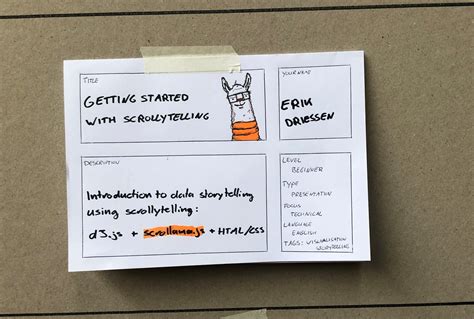 TITLE
GETTING STARTED
WITH SCROLLYTELLING
YOUR NAME
ERIK
DRIESSEN
DESCRIPTION
Introduction to data storytelling
using scrollytelling:
d3.js + scrollama.js + HTML/CSS
LEVEL
BEGINNER
TYPE
PRESENTATION
FOCUS
TECHNICAL
LANGUAGE
ENGLISH
TAGS: VISUALISATION